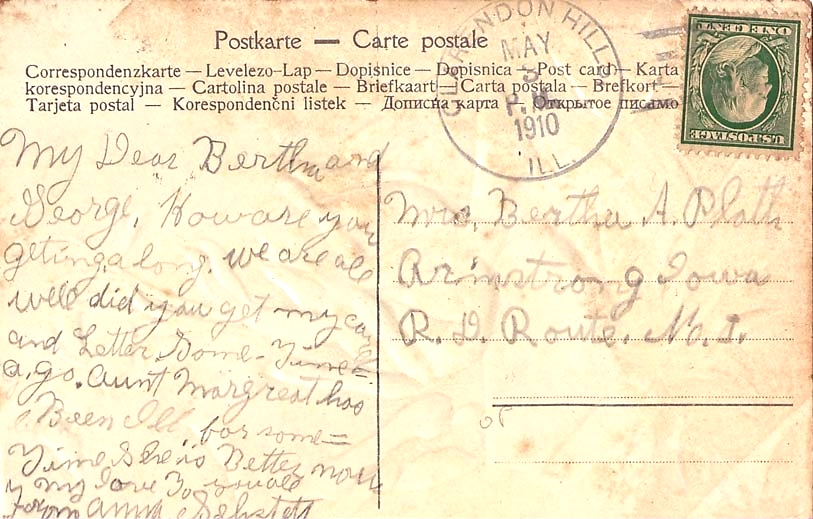 Postkarte — Carte postale
Correspondenzkarte — Levelezo-Lap — Dopisnice — Dopisnica — Post card — Karta
korespondencyjna — Cartolina postale — Briefkaart — Carta postala — Brefkort —
Tarjeta postal — Korespondenčni listek — Дописна карта — Открытое письмо
CLARENDON HILLS
MAY
3
P.M.
1910
ILL.
U.S. POSTAGE
ONE CENT
My Dear Bertha and
George, How are you
geting a long. we are all
well did you get my card
and Letter Some- Time=
a, go. Aunt Margreat has
Been Ill for some=
Time She is Better now
my love To you all
From Anna
Mrs. Bertha A. Plath
Armstrong Iowa
R. D. Route. No. 1.